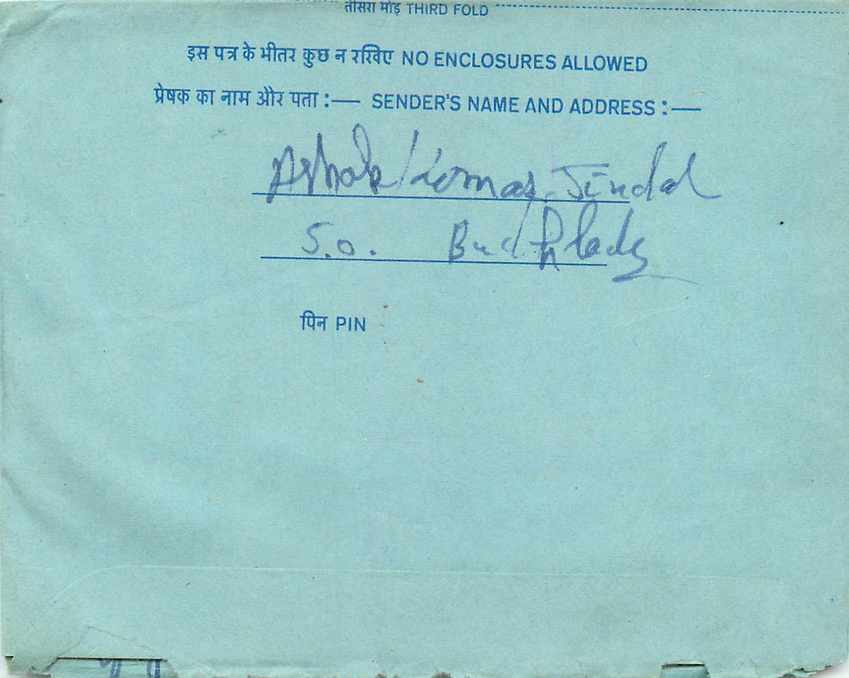 तीसरा मोड़ THIRD FOLD
इस पत्र के भीतर कुछ न रखिए NO ENCLOSURES ALLOWED
प्रेषक का नाम और पता :— SENDER'S NAME AND ADDRESS :—
Ashok Kumar Jindal
S.o. Budhlada
पिन PIN